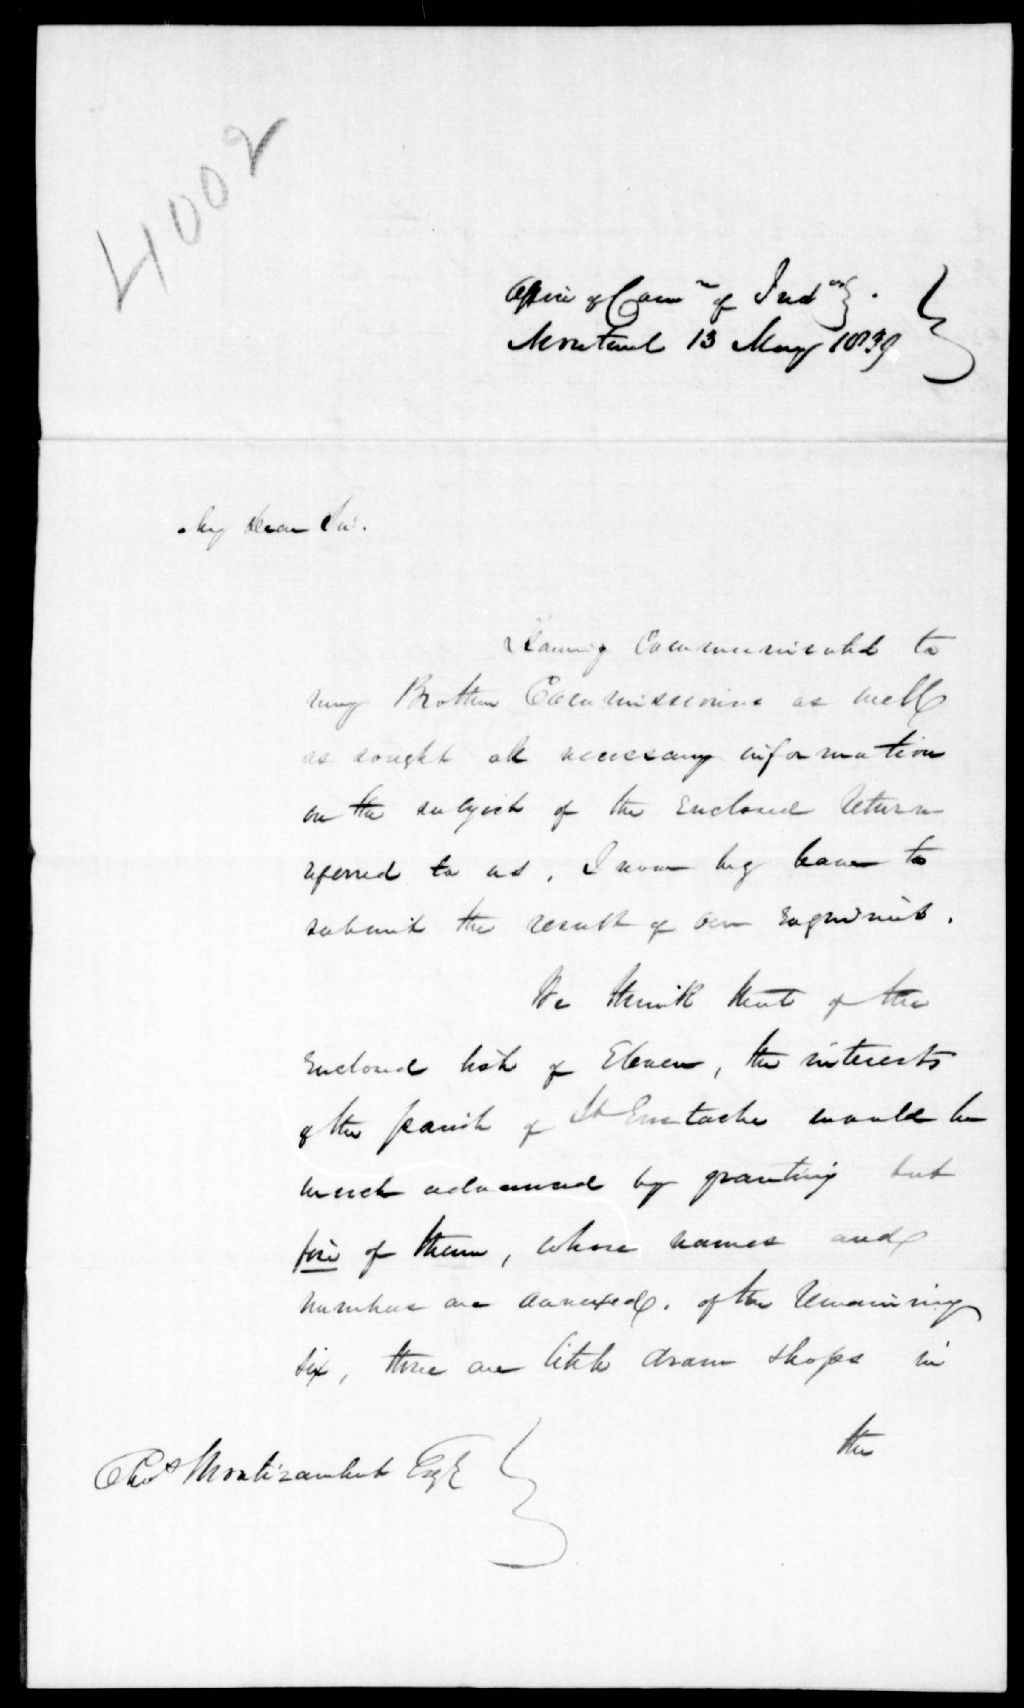 4002
Office of Comn of Indty.
Montreal 13 May 1839
My dear Sir.
Having Communicated to
my Brother Commissioners as well
as sought all necessary information
on the subject of the Enclosed Return
referred to us, I now beg leave to
submit the result of our Enquiries.
We think that of the
Enclosed list of Eleven, the interests
of the Parish of St Eustache would be
much advanced by granting but
five of them, whose names and
numbers are annexed. of the Remaining
six, three are little dram shops in
the
Montizambert Esqr